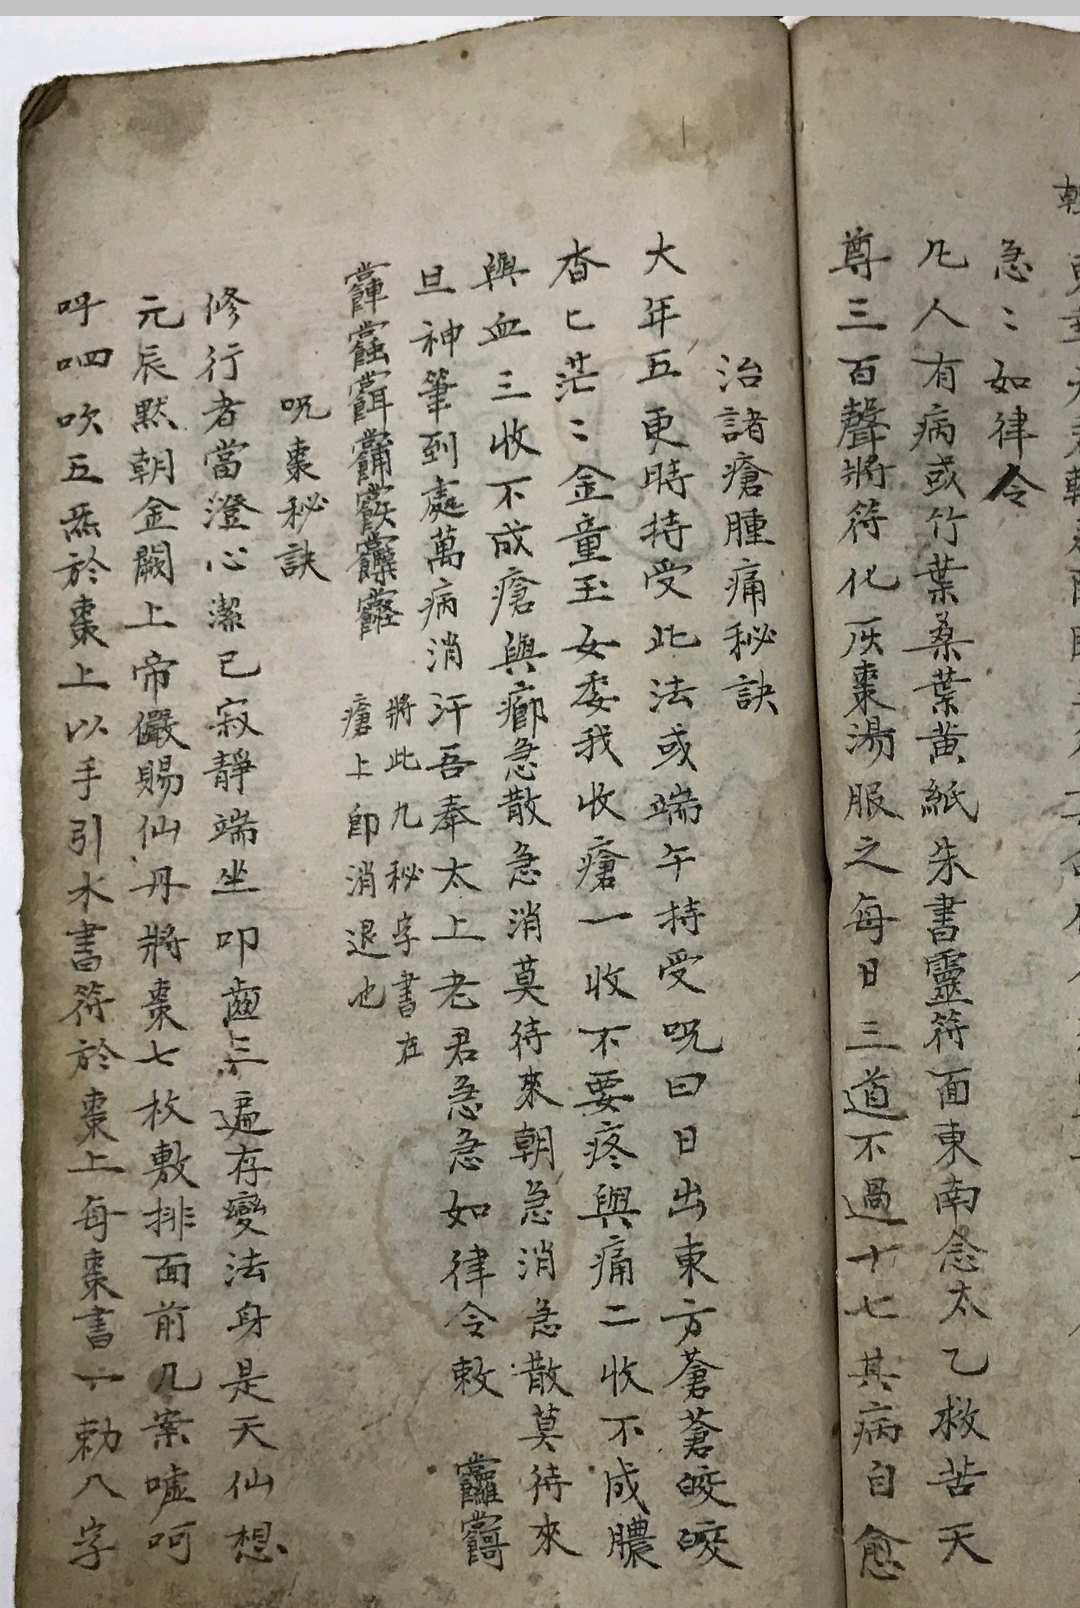 急〻如律令
凡人有病或竹葉桑葉黃紙朱書靈符面東南念太乙救苦天
尊三百聲將符化灰棗湯服之每日三道不過十七其病自愈
治諸瘡腫痛秘訣
大年五更時持受此法或端午持受呪曰日出東方蒼蒼皎皎
杳匕茫〻金童玉女委我收瘡一收不要疼與痛二收不成膿
與血三收不成瘡與癤急散急消莫待來朝急消急散莫待來
旦神筆到處萬病消汗吾奉太上老君急急如律令敕
將此九秘字書在
瘡上即消退也
呪棗秘訣
修行者當澄心潔己寂靜端坐叩齒三遍存變法身是天仙想
元辰默朝金闕上帝儼賜仙丹將棗七枚敷排面前几案噓呵
呼呬吹五炁於棗上以手引水書符於棗上每棗書一勅八字